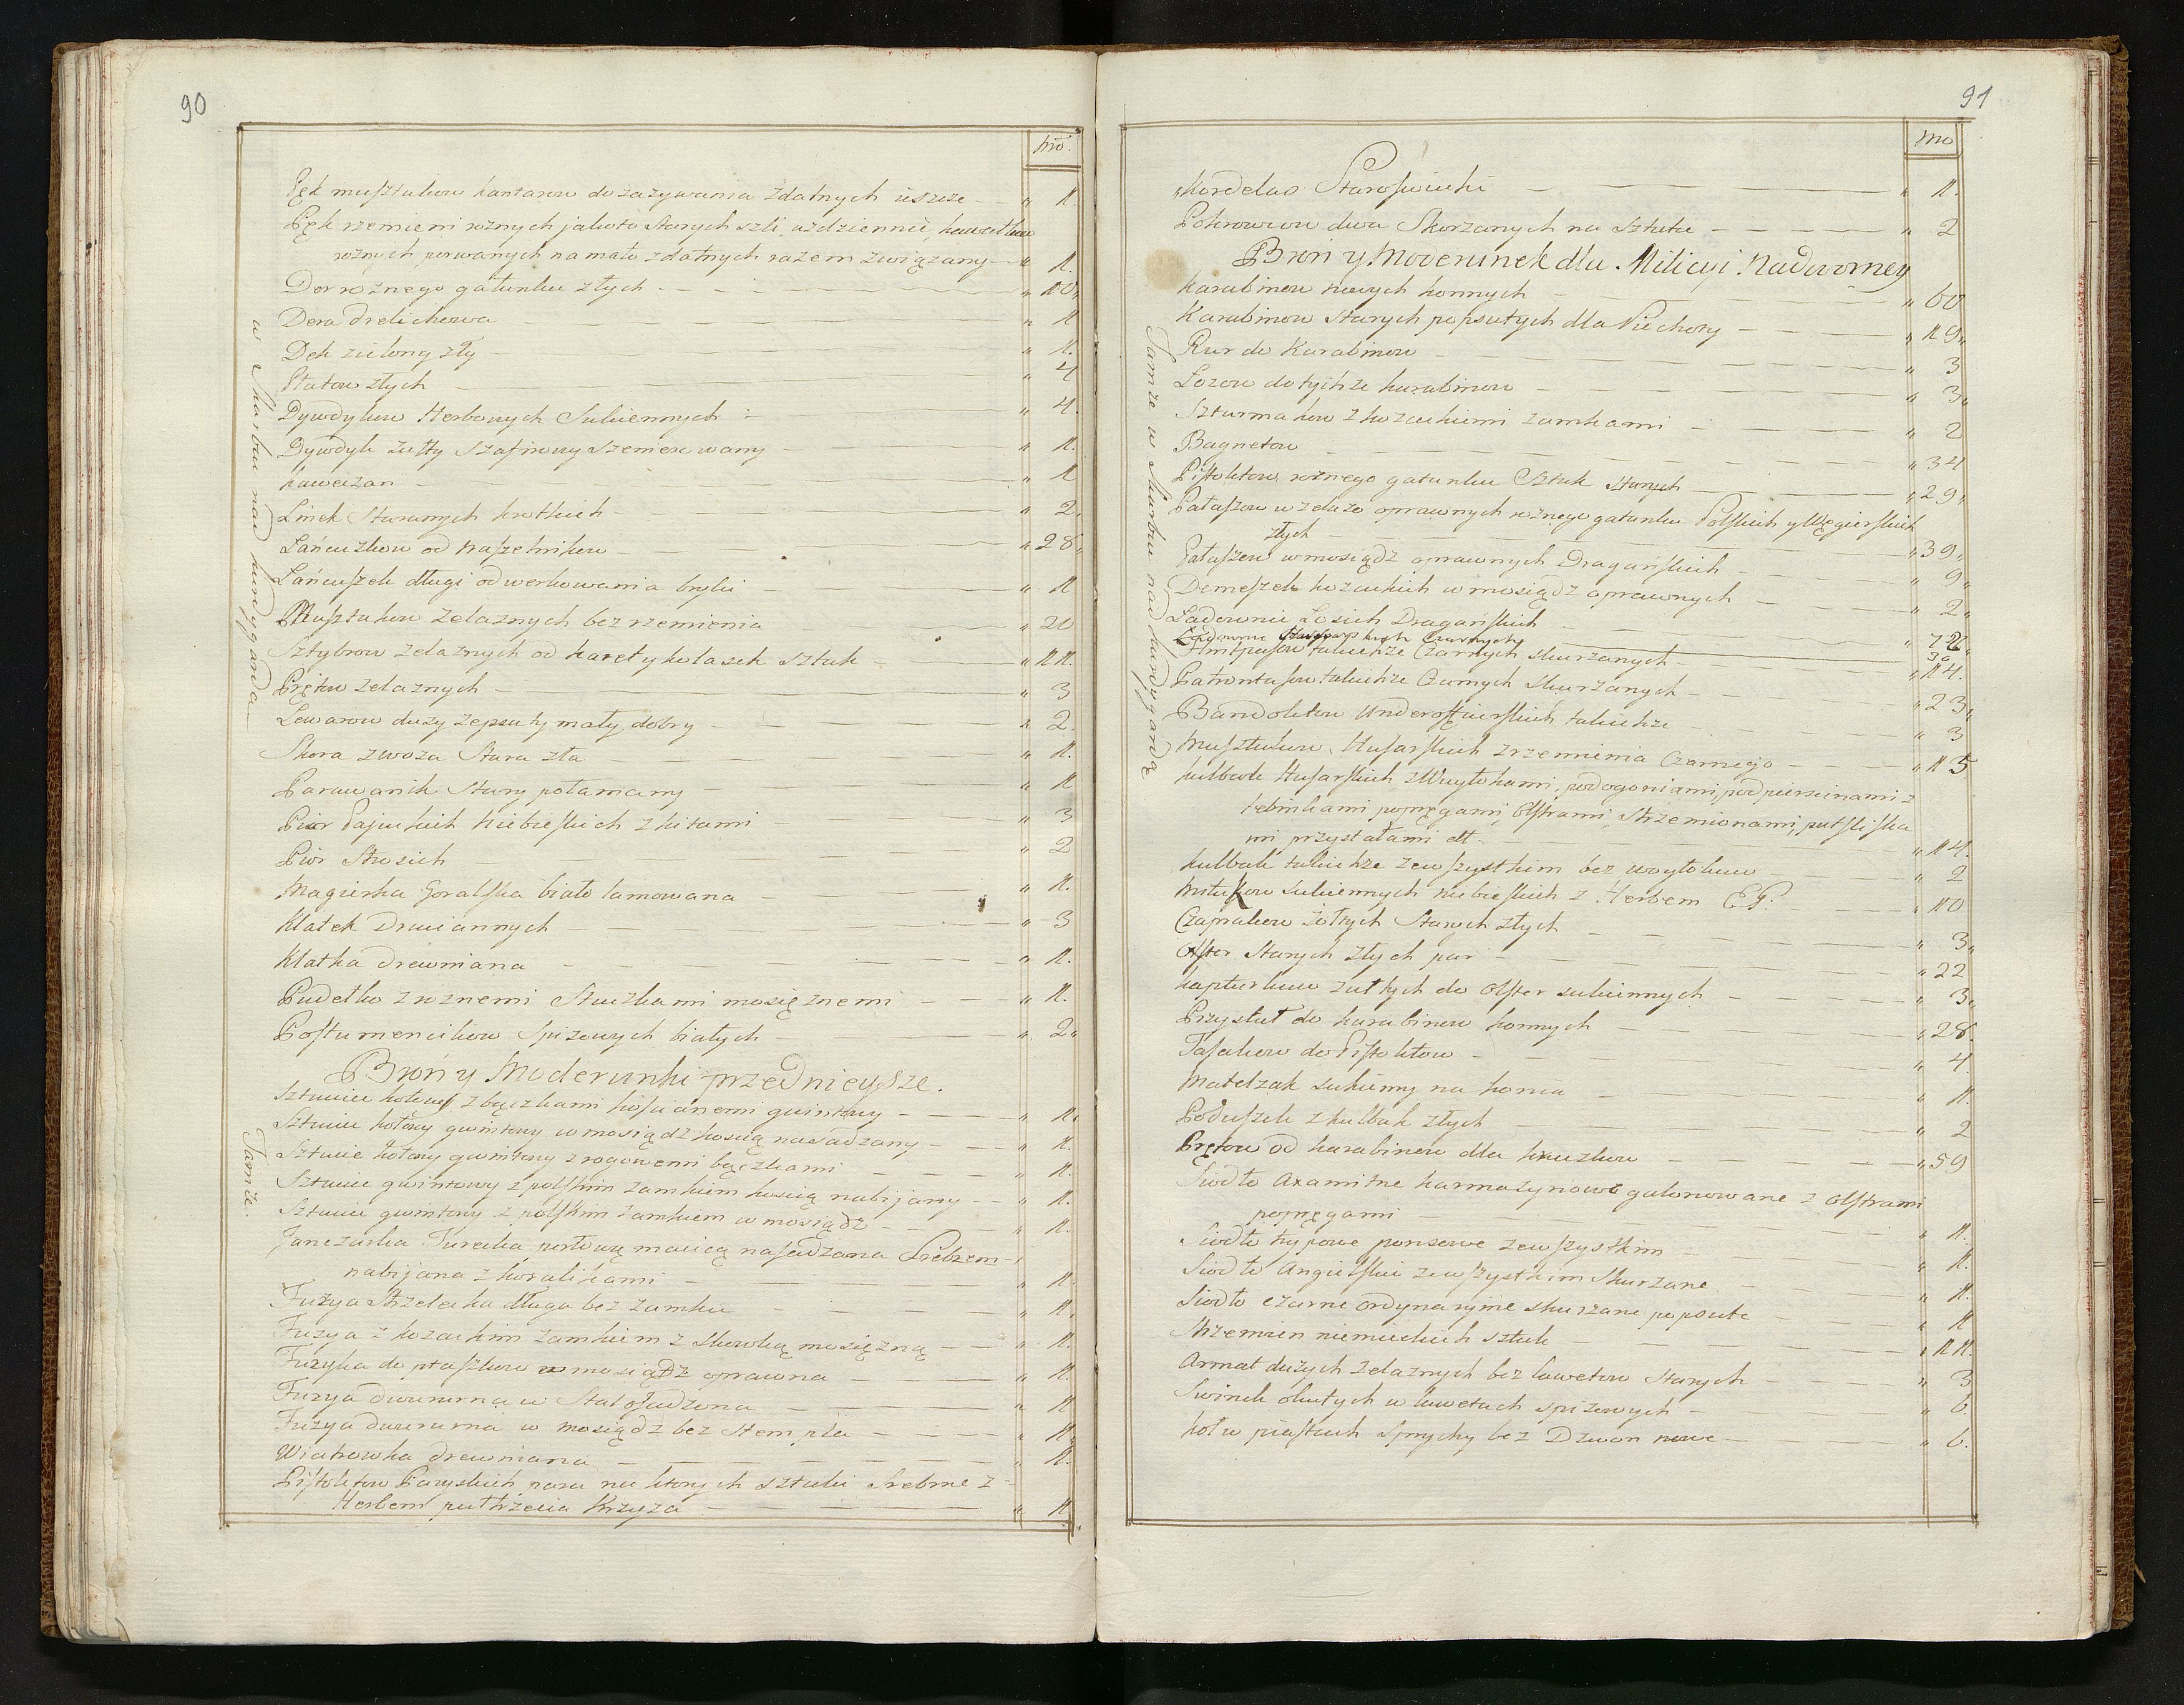 90
w Skarbu nad kurdygardą
Tamże.
nro.
Pęk musztukow kantarow do zażywania zdatnych ieszcze — „ 1.
Pęk rzemieni roznych jakoto starych szli, uzdziennic, kawałkow
roznych porwanych na mało zdatnych razem związany — „ 1.
Der roznego gatunku złych — „ 10„
Dera drelichowa — „ 1
Dek zielony zły — „ 1.
Płatow złych — „ 4
Dywdykow Herbowych Sukiennych — „ 4.
Dywdyk żułty szafirowy szamerowany — „ 1.
kaweczan — „ 1
Linek Starawnych krotkich — „ 2.
Łańcuzkow od naszelnikow — „ 28„
Łańcuszek długi od werkowania bryki — „ 1
Musztukow żelaznych bez rzemienia — „ 20
Sztybrow żelaznych od karety kolasek sztuk — „ 11.
Prętow żelaznych — „ 3
Lewarow duży zepsuty mały dobry — „ 2.
Skora z woza Stara zła — „ 1.
Parawanik Stary połamany — „ 1
Piór Pajuckich Niebieskich z kitami — „ 3
Piór Strusich — „ 2
Magierka Goralska biało lamowana — „ 1.
Klatek Druciannych — „ 3
Klatka drewniana — „ 1.
Pudełko z roznemi Stuczkami mosięznemi — „ 1.
Postumencikow Spiżowych białych — „ 2„
Broń y Moderunki przednieysze.
Sztuciec kołowy z bączkami kościanemi gwintowy — „ 1.
Sztuciec kołowy gwintowy w mosiądz kością nasadzany — „ 1.
Sztuciec kołowy gwintowy z rogowemi bączkami — „ 1.
Sztuciec gwintowy z polskim zamkiem kością nabijany — „ 1.
Sztuciec gwintowy z polskim zamkiem w mosiądz — „ 1.
Janczarka Turecka perłową macicą nasadzana Srebrem
nabijana z koralikami — „ 1.
Fuzya Strzelecka długa bez zamku — „ 1.
Fuzya z kozackim zamkiem z skowką mosięzną — „ 1.
Fuzyka do ptaszkow w mosiądz oprawna — „ 1.
Fuzya dwururna w Stal osadzona — „ 1
Fuzya dwururna w mosiądz bez Stempla — „ 1.
Wiatrowka drewniana — „ 1.
Pistoletow Paryskich para na ktorych sztuki Srebrne z
Herbem pułtrzecia Krzyża — „ 1.
91
Tamże w Skarbu nad kurdygardą
nro
„Kordelas Staroswiecki — „ 1.
Pokrowcow dwa Skorzanych na Sztuce — „ 2
Broń y Moderunek dla Milicyi Nadworney
Karabinow nowych konnych — „ 60
Karabinow Starych popsutych dla Piechoty — „ 19„
Rur do Karabinow — „ 3
Łozow do tychże karabinow — „ 3„
Szturmakow z kozackiemi zamkami — „ 2
Bagnetow — „ 34
Pistoletow roznego gatunku Sztuk Starych — „ 29„
Pałaszow w żelazo oprawnych roznego gatunku Polskich y Węgierskich
złych — „ 39„
Pałaszow w mosiądz oprawnych Dragańskich — „ 9„
Demeszek kozackich w mosiądz oprawnych — „ 2„
Ładownic Łosich Dragańskich — „ 72„
Ładownic czarnych 30
Flintpasow takichże Czarnych skurzanych — „ 14.
Patrontaszow takichże Czarnych skurzanych — „ 23„
Bandoletow Underoficierskich takichże — „ 3
Musztukow Husarskich z rzemienia Czarnego — „ 15
kulbak Husarskich z Woytokami, podogoniami, podpiersinami z
tebinkami popręgami Olstrami, Strzemionami, putsliska
mi przystałami dt — „ 14.
kulbak takichże ze wszystkim bez woytokow — „ 2
Mitukow sukiennych niebieskich z Herbem EG. — „ 10
Czaprakow żołtych Starych złych — „ 3„
Olster Starych złych par — „ 22
kapturkow żułtych do Olster sukiennych — „ 3„
Przystuł do karabinow konnych — „ 28.
Pasakow do Pistoletow — „ 4.
Matelzak sukienny na konia — „ 1
Poduszek z kulbak złych — „ 2
Prętow od karabinow dla kruczkow — „ 59
Siodło Axamitne karmazynowe galonowane z Olstrami
popręgami — „ 1.
Siodło trypowe ponsowe ze wszystkim — „ 1.
Siodło Angielskie ze wszystkim Skurzane — „ 1.
Siodło czarne ordynaryine skurzane popsute — „ 1
Strzemien niemieckich sztuk — „ 11.
Armat dużych żelaznych bez lawetow Starych — „ 3
Swinek okutych w lawetach spiżowych — „ 6.
koł w piastach Sprychy bez Dzwon nowe — „ 6.